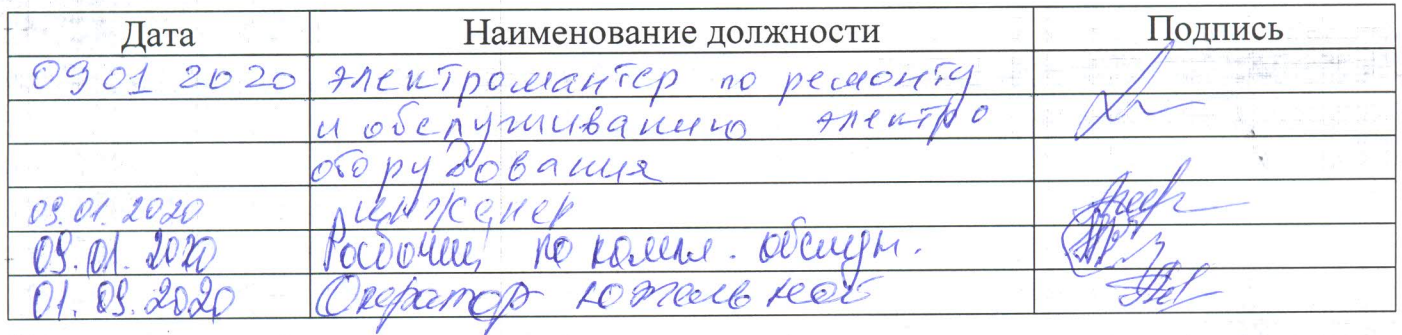 Дата Наименование должности Подпись
09 01 2020 электромантер по ремонту
и обслуживанию электро
оборудования
09.01.2020 инженер
09.01.2020 Рабочий по компл. обслуж.
01.09.2020 Оператор котельной